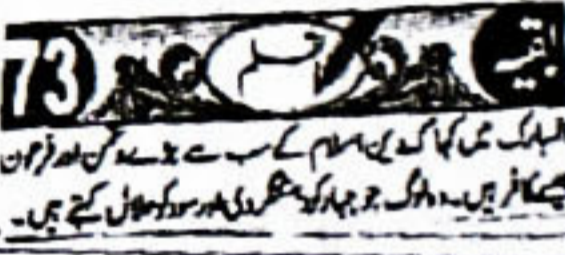 73
المبارک میں کہا کہ دین اسلام کے سب سے بڑے دشمن اور فرعون
جیسے کافر ہیں۔ وہ لوگ جو جہاد کو دہشتگردی اور سود کو حلال کہتے ہیں۔